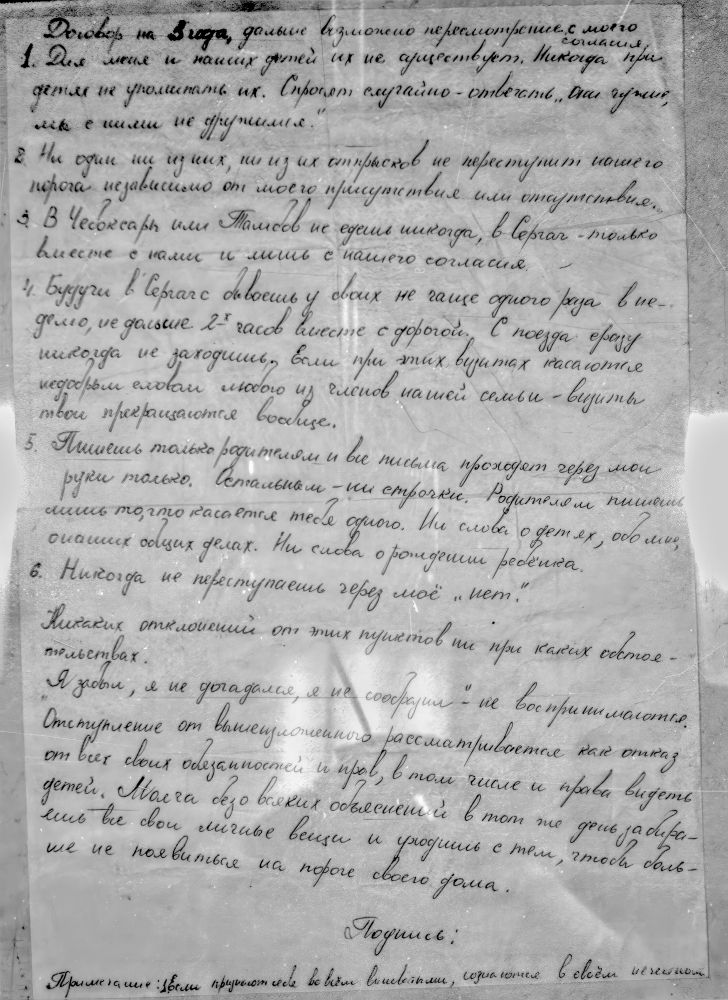 Договор на 3 года, дальше возможно пересмотрение с моего
согласия
1. Для меня и наших детей их не существует. Никогда при
детях не упоминать их. Спросят случайно - отвечать „они чужие,
мы с ними не дружимся."
2. Ни один ни из них, ни из их отпрысков не переступит нашего
порога независимо от моего присутствия или отсутствия.
3. В Чебоксары или Тамбов не едешь никогда, в Сергач - только
вместе с нами и лишь с нашего согласия.
4. Будучи в Сергаче бываешь у своих не чаще одного раза в не-
делю, не дольше 2-х часов вместе с дорогой. С поезда сразу
никогда не заходишь. Если при этих визитах касаются
недобрым словом любого из членов нашей семьи - визиты
твои прекращаются вообще.
5. Пишешь только родителям и все письма проходят через мои
руки только. Остальным - ни строчки. Родителям пишешь
лишь то, что касается тебя одного. Ни слова о детях, обо мне,
о наших общих делах. Ни слова о рождении ребёнка.
6. Никогда не переступаешь через моё „нет".
Никаких отклонений от этих пунктов ни при каких обстоя-
тельствах.
„Я забыл, я не догадался, я не сообразил" - не воспринимаются.
Отступление от вышеизложенного рассматривается как отказ
от всех своих обязанностей и прав, в том числе и права видеть
детей. Молча безо всяких объяснений в тот же день забира-
ешь все свои личные вещи и уходишь с тем, чтобы боль-
ше не появиться на пороге своего дома.
Подпись:
Примечание: 1) Если признают себя во всём виноватыми, сознаются в своём